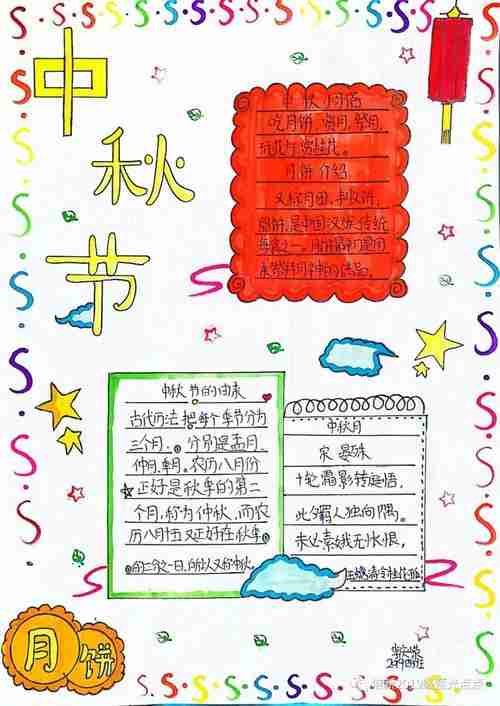 中
秋
节
中秋习俗
吃月饼、赏月、祭月、
玩花灯、赏桂花。
月饼介绍
又称月团、丰收饼、
团饼,是中国汉族传统
中秋节的由来
古代历法把每个季节分为
三个月。分别是孟月、
仲月、季月。农历八月份
正好是秋季的第二
个月,称为仲秋,而农
历八月十五又正好在秋季
的三分之一日,所以又称中秋。
中秋月
宋 晏殊
十轮霜影转庭梧,
此夕羁人独向隅。
未必素娥无怅恨,
月饼